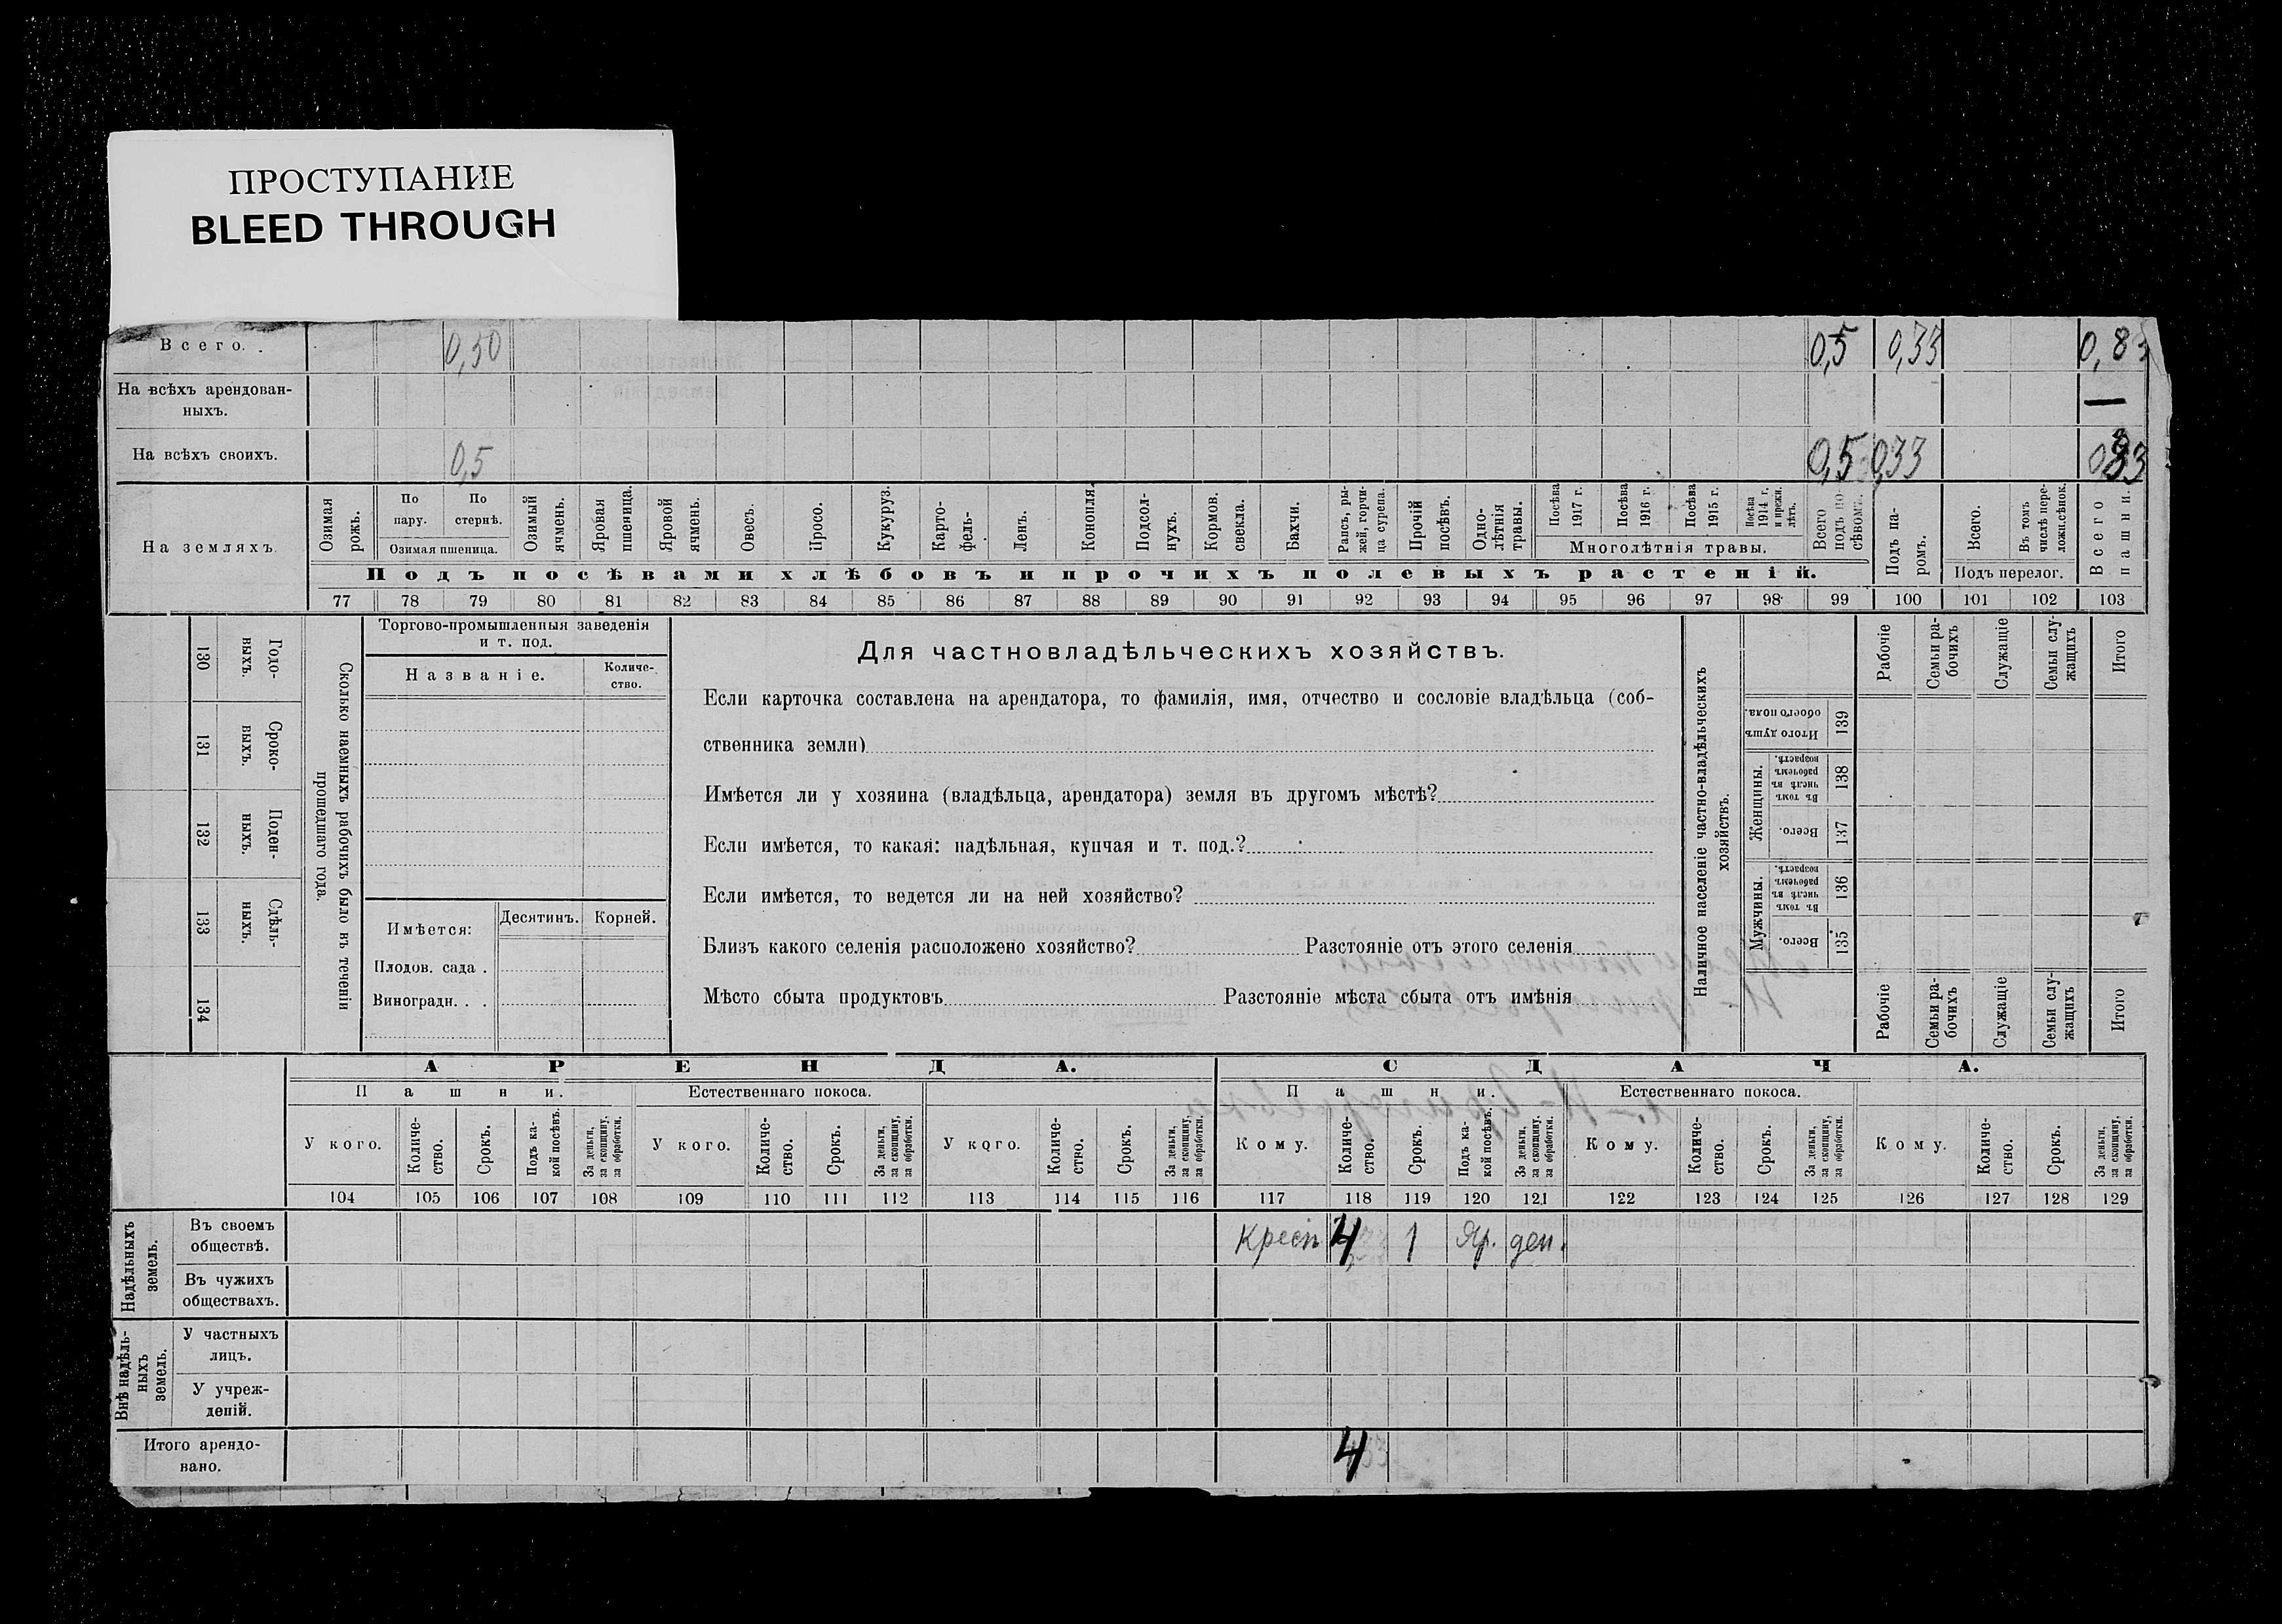 ПРОСТУПАНИЕ
BLEED THROUGH
Всего. . 0,50 0,5 0,33 0,83
На всѣхъ арендован-
ныхъ. —
На всѣхъ своихъ. 0,5 0,5 0,33
На земляхъ.
Озимая рожь.
По пару.
По стернѣ.
Озимая пшеница.
Озимый ячмень.
Яровая пшеница.
Яровой ячмень.
Овесъ.
Просо.
Кукуруз.
Карто-
фель-
Ленъ.
Конопля.
Подсол-
нухъ.
Кормов. свекла.
Бахчи.
Рапсъ, ры-
жей, горчи-
ца сурепа.
Прочій посѣвъ.
Одно-
лѣтнія травы.
Посѣва 1917 г.
Посѣва 1916 г.
Посѣва 1915 г.
Посѣва 1914 г. и прежн. лѣтъ.
Многолѣтнія травы.
Всего подъ по-
сѣвомъ.
Подъ па-
ромъ.
Всего.
Въ томъ числѣ пере-
лож.сѣнок.
Подъ перелог.
Всего пашни.
Подъ посѣвами хлѣбовъ и прочихъ полевыхъ растеній.
77 78 79 80 81 82 83 84 85 86 87 88 89 90 91 92 93 94 95 96 97 98 99 100 101 102 103
130 Годо-
ныхъ.
131 Сроко-
выхъ.
132 Поден-
ныхъ.
133 Сдѣль-
ныхъ.
134
Сколько наемныхъ рабочихъ было въ теченіи
прошедшаго года.
Торгово-промышленныя заведенія
и т. под.
Названіе.
Количе-
ство.
Имѣется:
Десятинъ. Корней.
Плодов. сада .
Виноградн. . .
Для частновладѣльческихъ хозяйствъ.
Если карточка составлена на арендатора, то фамилія, имя, отчество и сословіе владѣльца (соб-
ственника земли)
Имѣется ли у хозяина (владѣльца, арендатора) земля въ другомъ мѣстѣ?
Если имѣется, то какая: надѣльная, купчая и т. под.?
Если имѣется, то ведется ли на ней хозяйство?
Близъ какого селенія расположено хозяйство? Разстояніе отъ этого селенія
Мѣсто сбыта продуктовъ Разстояніе мѣста сбыта отъ имѣнія
Наличное населеніе частно-владѣльческихъ
хозяйствъ.
Рабочіе
Семьи ра-
бочихъ
Служащіе
Семьи слу-
жащихъ
Итого
Итого душъ обоего пола. 139
Женщины.
Въ томъ числѣ въ рабочемъ возрастѣ. 138
Всего. 137
Мужчины.
Въ томъ числѣ въ рабочемъ возрастѣ. 136
Всего. 135
Рабочіе
Семьи ра-
бочихъ
Служащіе
Семьи слу-
жащихъ
Итого
АРЕНДА. СДАЧА.
Пашни. Естественнаго покоса. Пашни. Естественнаго покоса.
У кого.
Количе-
ство.
Срокъ.
Подъ ка-
кой посѣвъ.
За деньги,
за скопщину,
за обработки.
У кого.
Количе-
ство.
Срокъ.
За деньги,
за скопщину,
за обработки.
У кого.
Количе-
ство.
Срокъ.
За деньги,
за скопщину,
за обработки.
Кому.
Количе-
ство.
Срокъ.
Подъ ка-
кой посѣвъ.
За деньги,
за скопщину,
за обработки.
Кому.
Количе-
ство.
Срокъ.
За деньги,
за скопщину,
за обработки.
Кому.
Количе-
ство.
Срокъ.
За деньги,
за скопщину,
за обработки.
104 105 106 107 108 109 110 111 112 113 114 115 116 117 118 119 120 121 122 123 124 125 126 127 128 129
Надѣльныхъ
земель.
Въ своемъ
обществѣ.
Крест 4 1 Яр. ден.
Въ чужихъ
обществахъ.
Внѣ надѣль-
ныхъ
земель.
У частныхъ
лицъ.
У учреж-
деній.
Итого арендо-
вано.
4